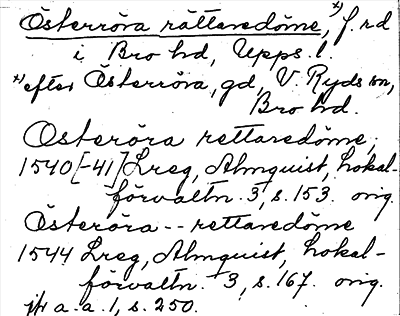 Österröra rättaredöme, x) f. rd
i Bro hd, Upps. l
x) efter Österröra, gd, V. Ryds sn,
Bro hd.
Osteröra rettaredöme,
1540[-41] Lreg, Almquist, Lokal-
förvaltn. 3, s. 153. orig.
Österöra -- rettaredöme
1544 Lreg, Almquist, Lokal-
förvaltn. 3, s. 167. orig.
jfr a. a. 1, s. 250.